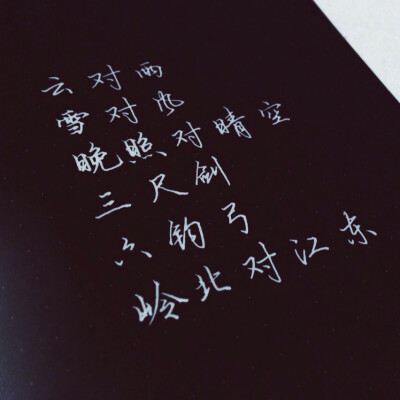 云对雨
雪对风
晚照对晴空
三尺剑
六钧弓
岭北对江东